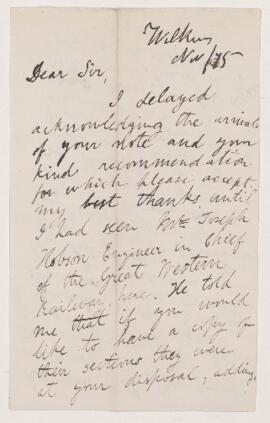 Nov/75
Dear Sir,
I delayed
acknowledging the arrival
of your note and your
kind recommendation
for which please accept
my best thanks until
I had seen Mr. Joseph
Hobson Engineer in Chief
of the Great Western
Railway here. He told
me that if you would
like to have a copy of
their sections they were
at your disposal, adding